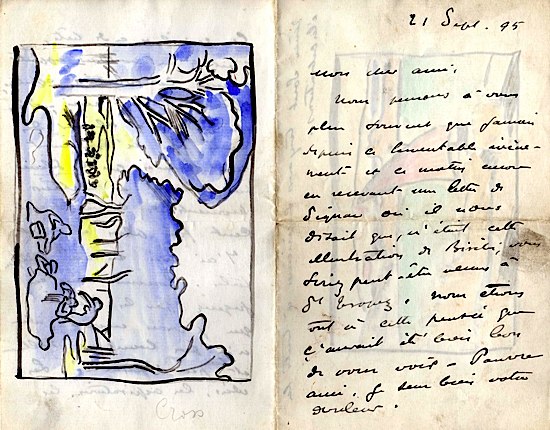 21 Sept. 95
mon cher ami,
Nous pensons à vous
plus souvent que jamais
depuis ce lamentable évène-
ment et ce matin encore
en recevant une lettre de
Signac où il nous
disait que, n'était cette
illustration de
seriez peut-être venus à
St Tropez, nous étions
tout à cette pensée que
ç'aurait été bien bon
de vous voir - Pauvre
ami, je sens bien votre
douleur.
Cross